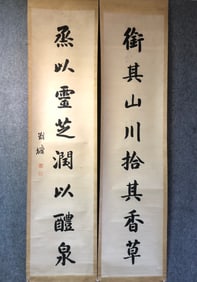 衔其山川拾其香草
烝以靈芝潤以醴泉
劉墉